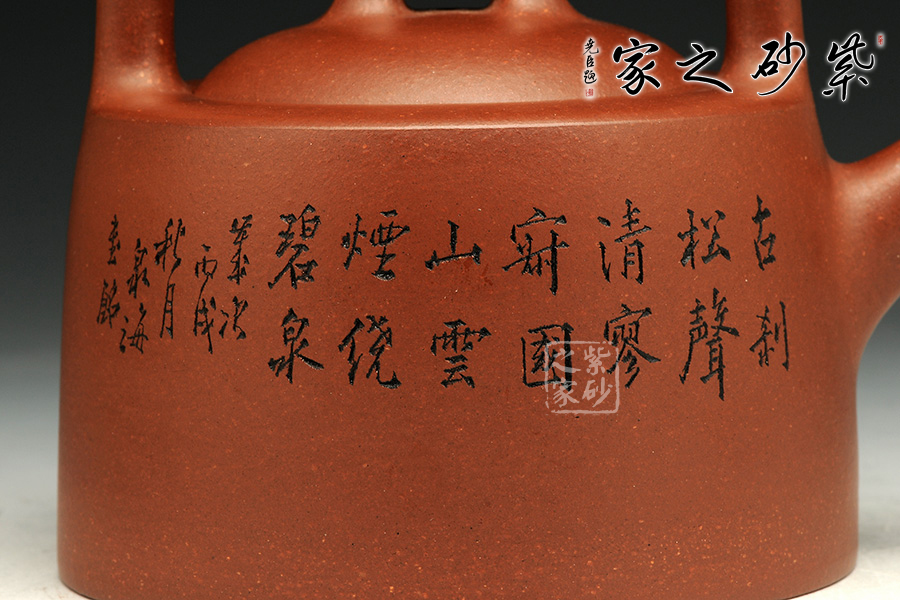 紫砂之家
古刹
松聲
清寥
山雲
煙绕
碧泉
歲次
丙戌
秋月
泉海
紫砂之家